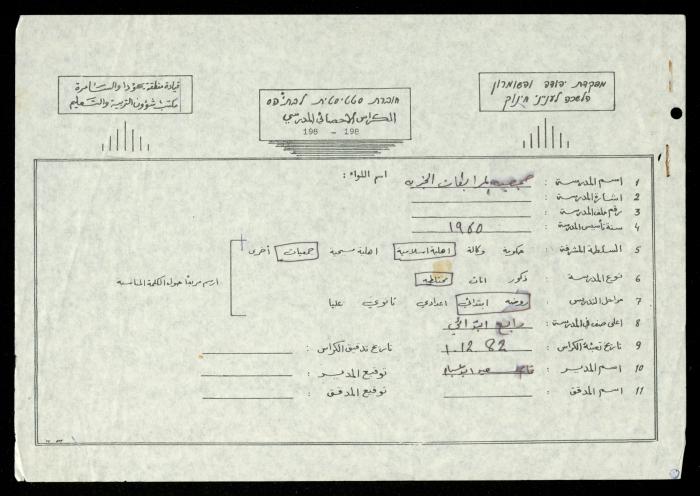 מפקדת יהודה והשומרון
הלשכה לעניני חינוך
חוברת סטטיסטית לבתי הס
الكراس الإحصائي المدرسي
198 - 198
قيادة منطقة يهودا والسامرة
مكتب شؤون التربية والتعليم
اسم اللواء :
1 اسم المدرسة :
2 اشارة المدرسة :
3 رقم ملف المدرسة :
4 سنة تأسيس المدرسة : 1960
5 السلطة المشرفة : حكومية وكالة اهلية اسلامية اهلية مسيحية جمعيات أخرى
6 نوع المدرسة : ذكور اناث مختلطة
ارسم مربعا حول الكلمة المناسبة
7 مراحل التدريس : روضة ابتدائي اعدادي ثانوي عليا
8 اعلى صف في المدرسة : رابع ابتدائي
9 تاريخ تعبئة الكراس : 1.12.82 تاريخ تدقيق الكراس :
10 اسم المدير : توقيع المدير :
11 اسم المدقق : توقيع المدقق :